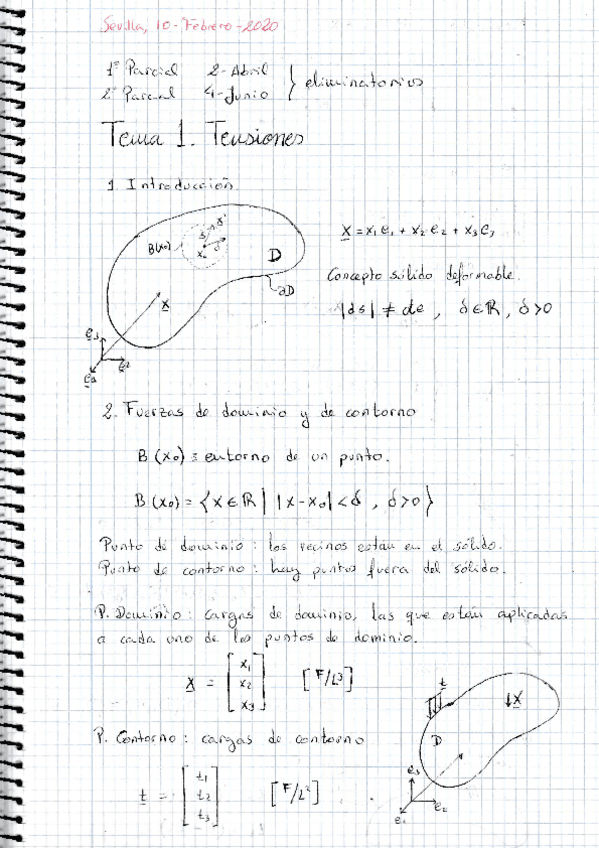 Sevilla, 10-Febrero-2020
1º Parcial 2-Abril
2º Parcial 4-Junio } eliminatorios
Tema 1. Tensiones
1. Introducción.
B(x₀) x₀ δ D
∂D
x
e₃ e₂ e₁
x = x₁e₁ + x₂e₂ + x₃e₃
Concepto sólido deformable.
|ds| ≠ de , δ∈ℝ, δ>0
2. Fuerzas de dominio y de contorno
B(x₀) ≡ entorno de un punto.
B(x₀) = {x∈ℝ | |x-x₀|<δ , δ>0}
Punto de dominio: los vecinos están en el sólido.
Punto de contorno: hay puntos fuera del sólido.
P. Dominio: cargas de dominio, las que están aplicadas
a cada uno de los puntos de dominio.
X = [x₁ x₂ x₃] [F/L³]
P. Contorno: cargas de contorno
t = [t₁ t₂ t₃] [F/L²]
t ↓X
D
e₃ e₂ e₁